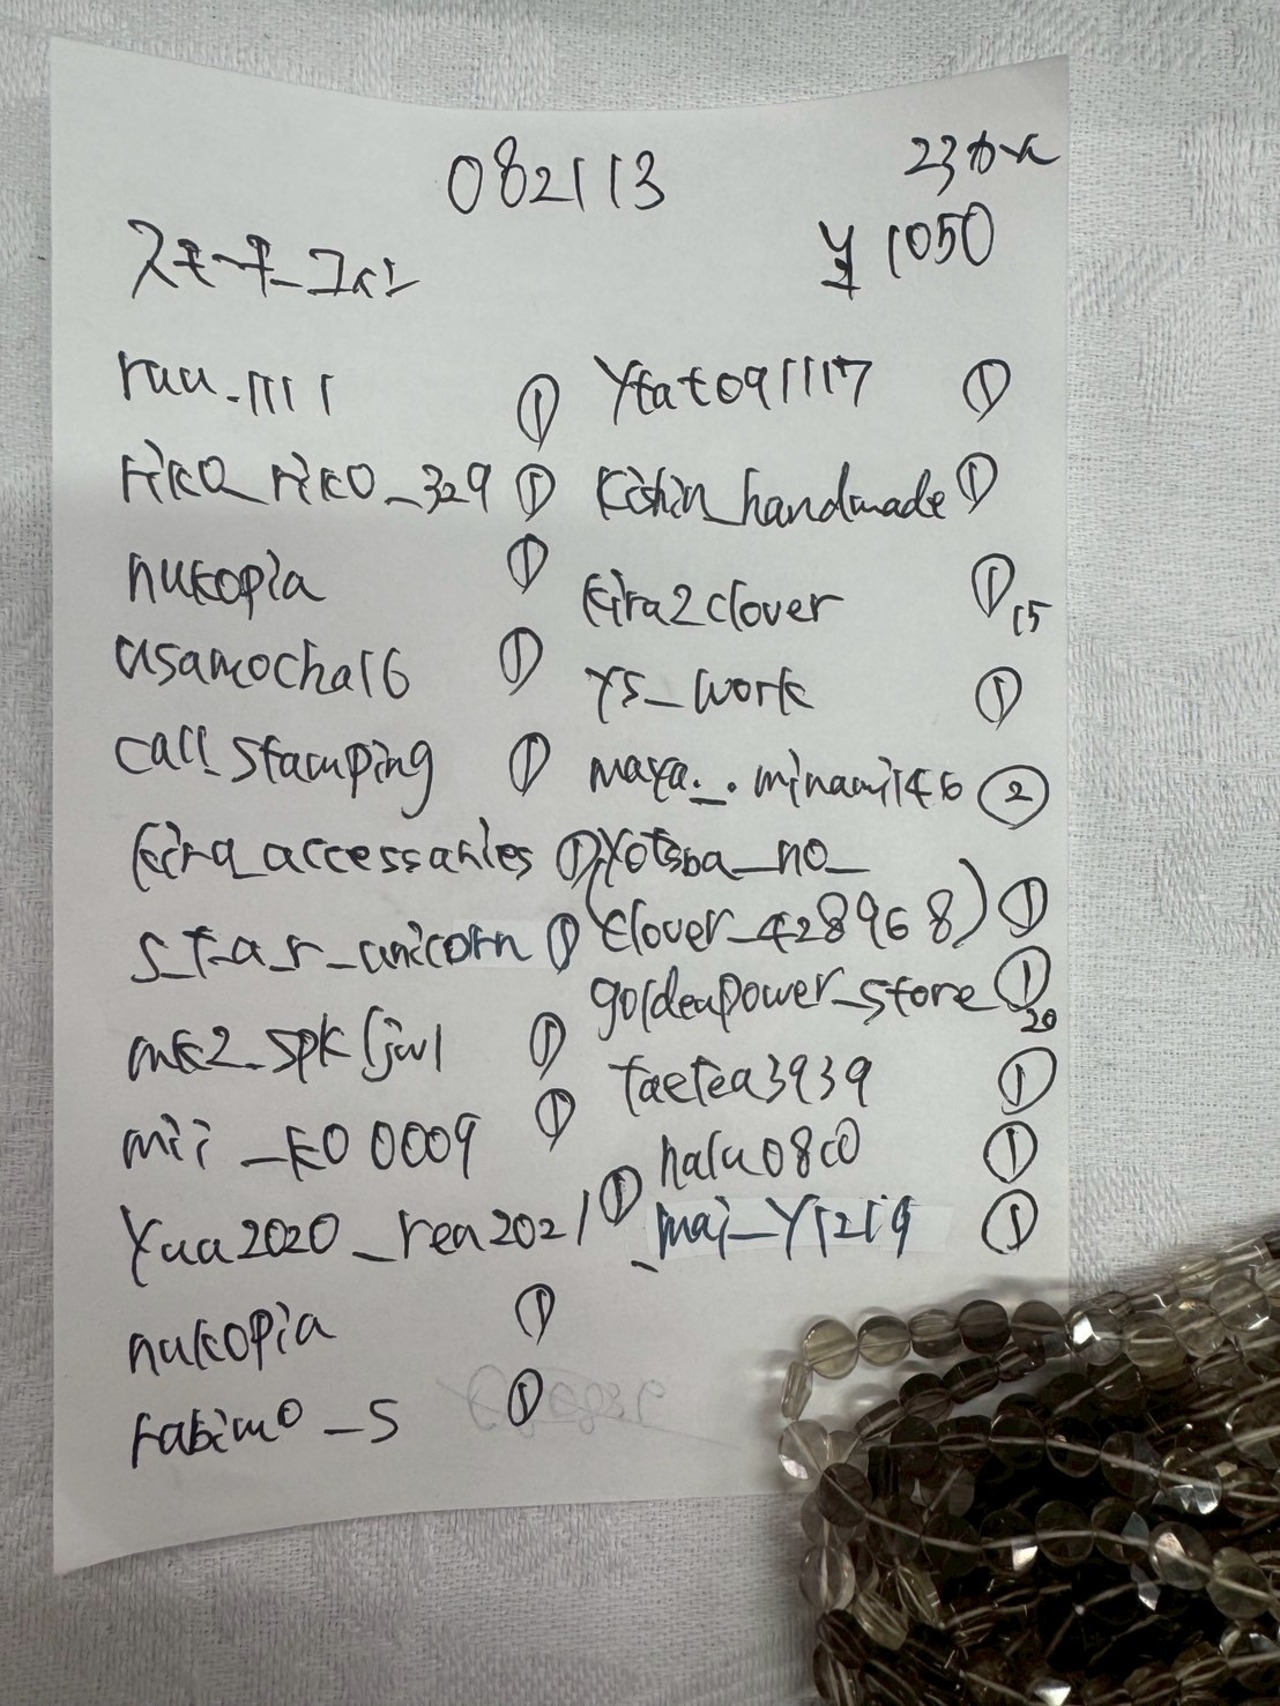 082113
23
スモーキーコイン
¥1050
rau.1111 ①
riko_riko_329 ①
nukopia ①
usamocha16 ①
call.stamping ①
kira_accessories ①
s_t_a_r_unicorn ①
mk2.spkljwl ①
mii_ko0009 ①
yua2020_rea2021 ①
nukopia ①
rabimo_s ①
ytat091117 ①
kishin_handmade ①
kira2clover ① 15
ys_work ①
maya._.minami146 ②
(yotsba_no_
clover_428968) ①
goldenpower_store ① 20
taetea3939 ①
halu0800 ①
_mai_y1219 ①